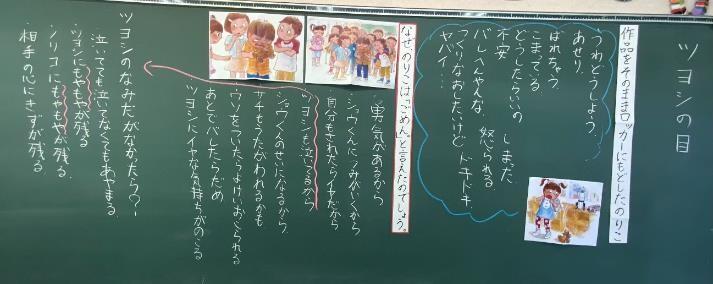 ツヨシの目
作品をそのままロッカーにもどしたのりこ
うわどうしよう、
あせり、
ばれちゃう
こまっている
どうしたらいいの
不安
バレへんやんな
つくりなおしたいけど
ヤバイ…
しまった
怒られる
ドキドキ
なぜ、のりこは「ごめん。」と言えたのでしょう。
・勇気があるから
・ショウくんにつみがいくから
・自分もされたらイヤだから
・ツヨシも泣いてるから
・ショウくんのせいになるから
・ウソをついたらよけいおこられる
・あとでバレたらだめ
・ツヨシにイヤな気持ちがのこる
ツヨシのなみだがなかったら？
泣いてても泣いてなくてもあやまる
・ツヨシにもやもやが残る
・ノリコにもやもやが残る
・相手の心にきずが残る